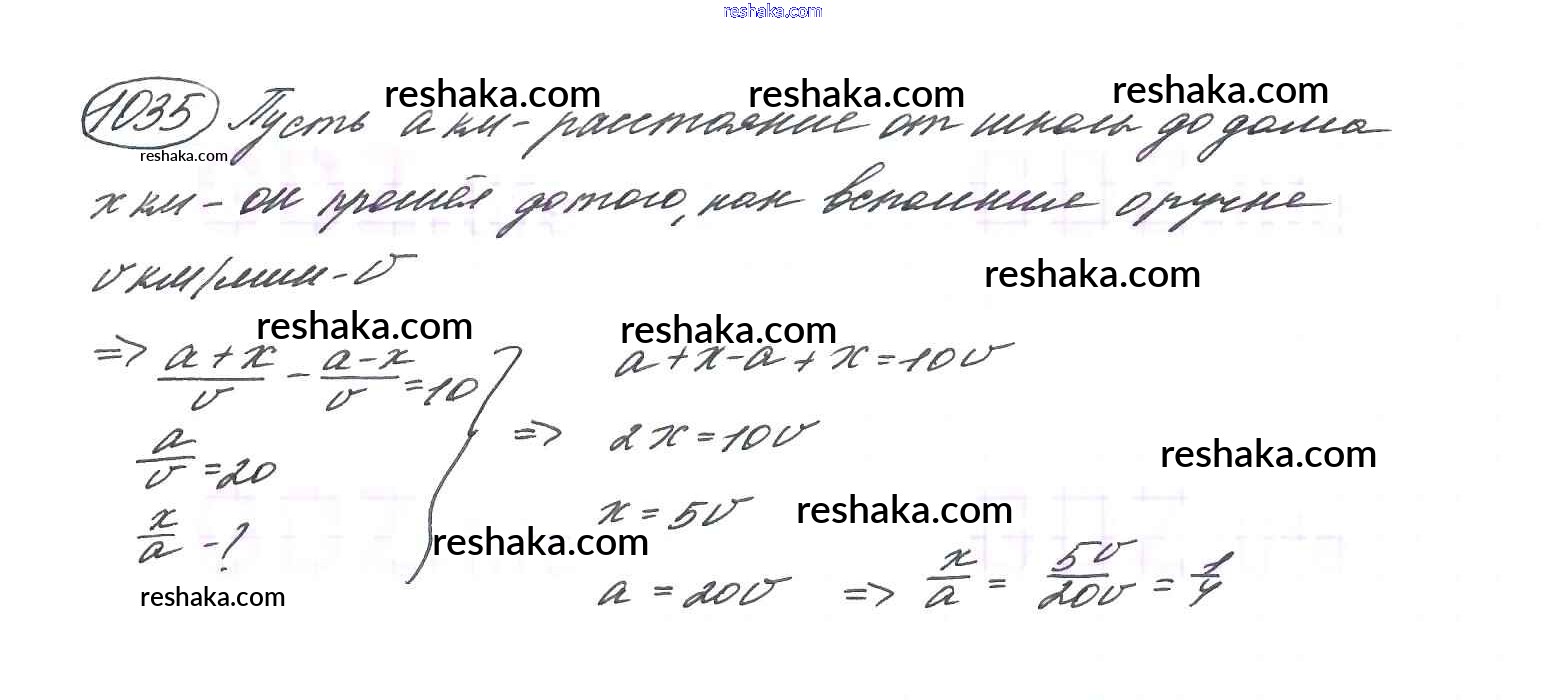 reshaka.com
reshaka.com reshaka.com reshaka.com
1035 Пусть a км - расстояние от школы до дома
reshaka.com
x км - он прошёл до того, как вспомнил о ручке
v км/мин - v
reshaka.com
reshaka.com reshaka.com
=> (a + x)/v - (a - x)/v = 10 a + x - a + x = 10v
a/v = 20 => 2x = 10v
reshaka.com
x/a - ? x = 5v reshaka.com
reshaka.com
reshaka.com a = 20v => x/a = 5v/20v = 1/4